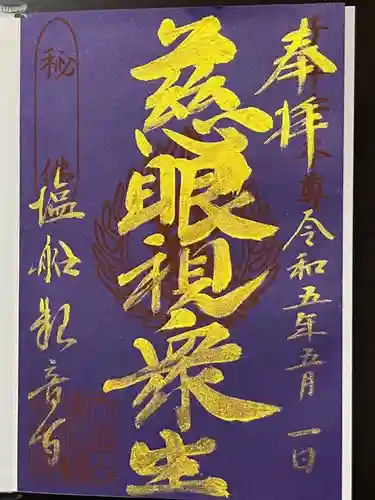 奉拝
令和五年五月一日
慈眼視衆生
秘
塩船観音寺